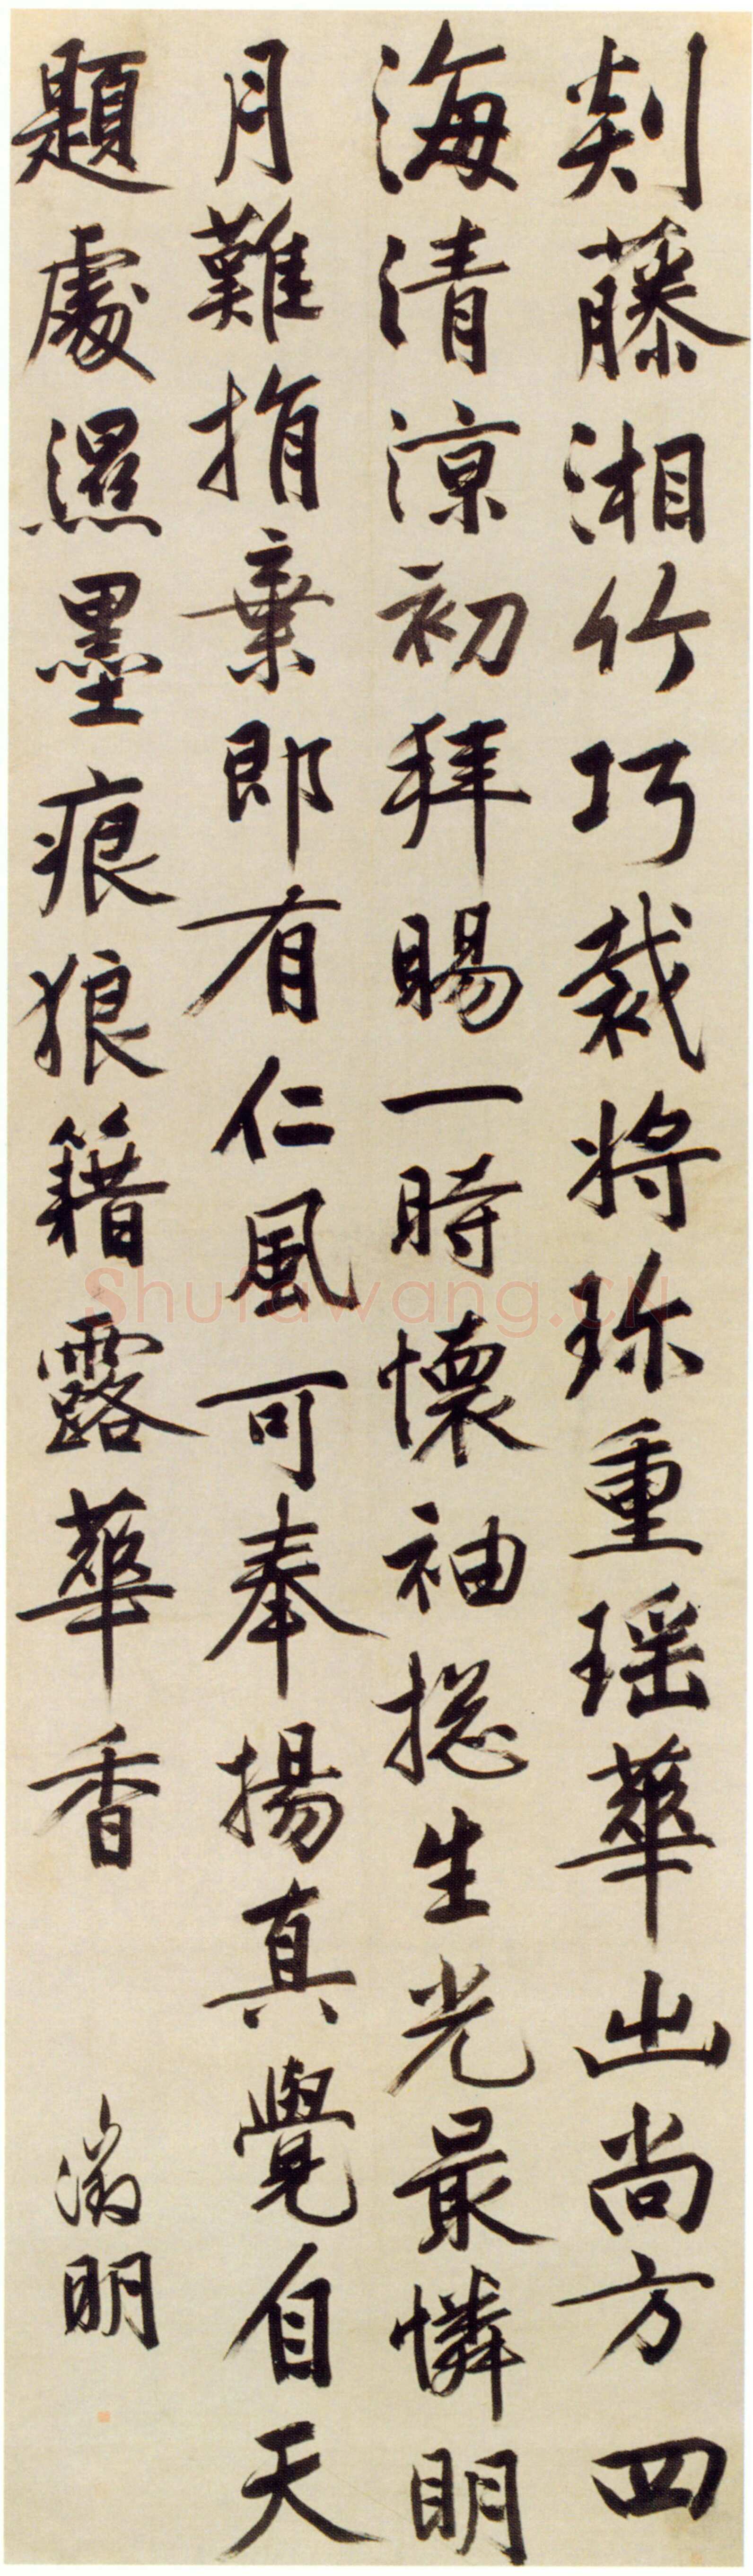 剡藤湘竹巧裁将珎重瑶華出尚方四
海清涼初拜賜一時懷袖揔生光最憐明
月難捐棄即有仁風可奉揚真覺自天
題處濕墨痕狼籍露華香
徵明
Shufawang.CN